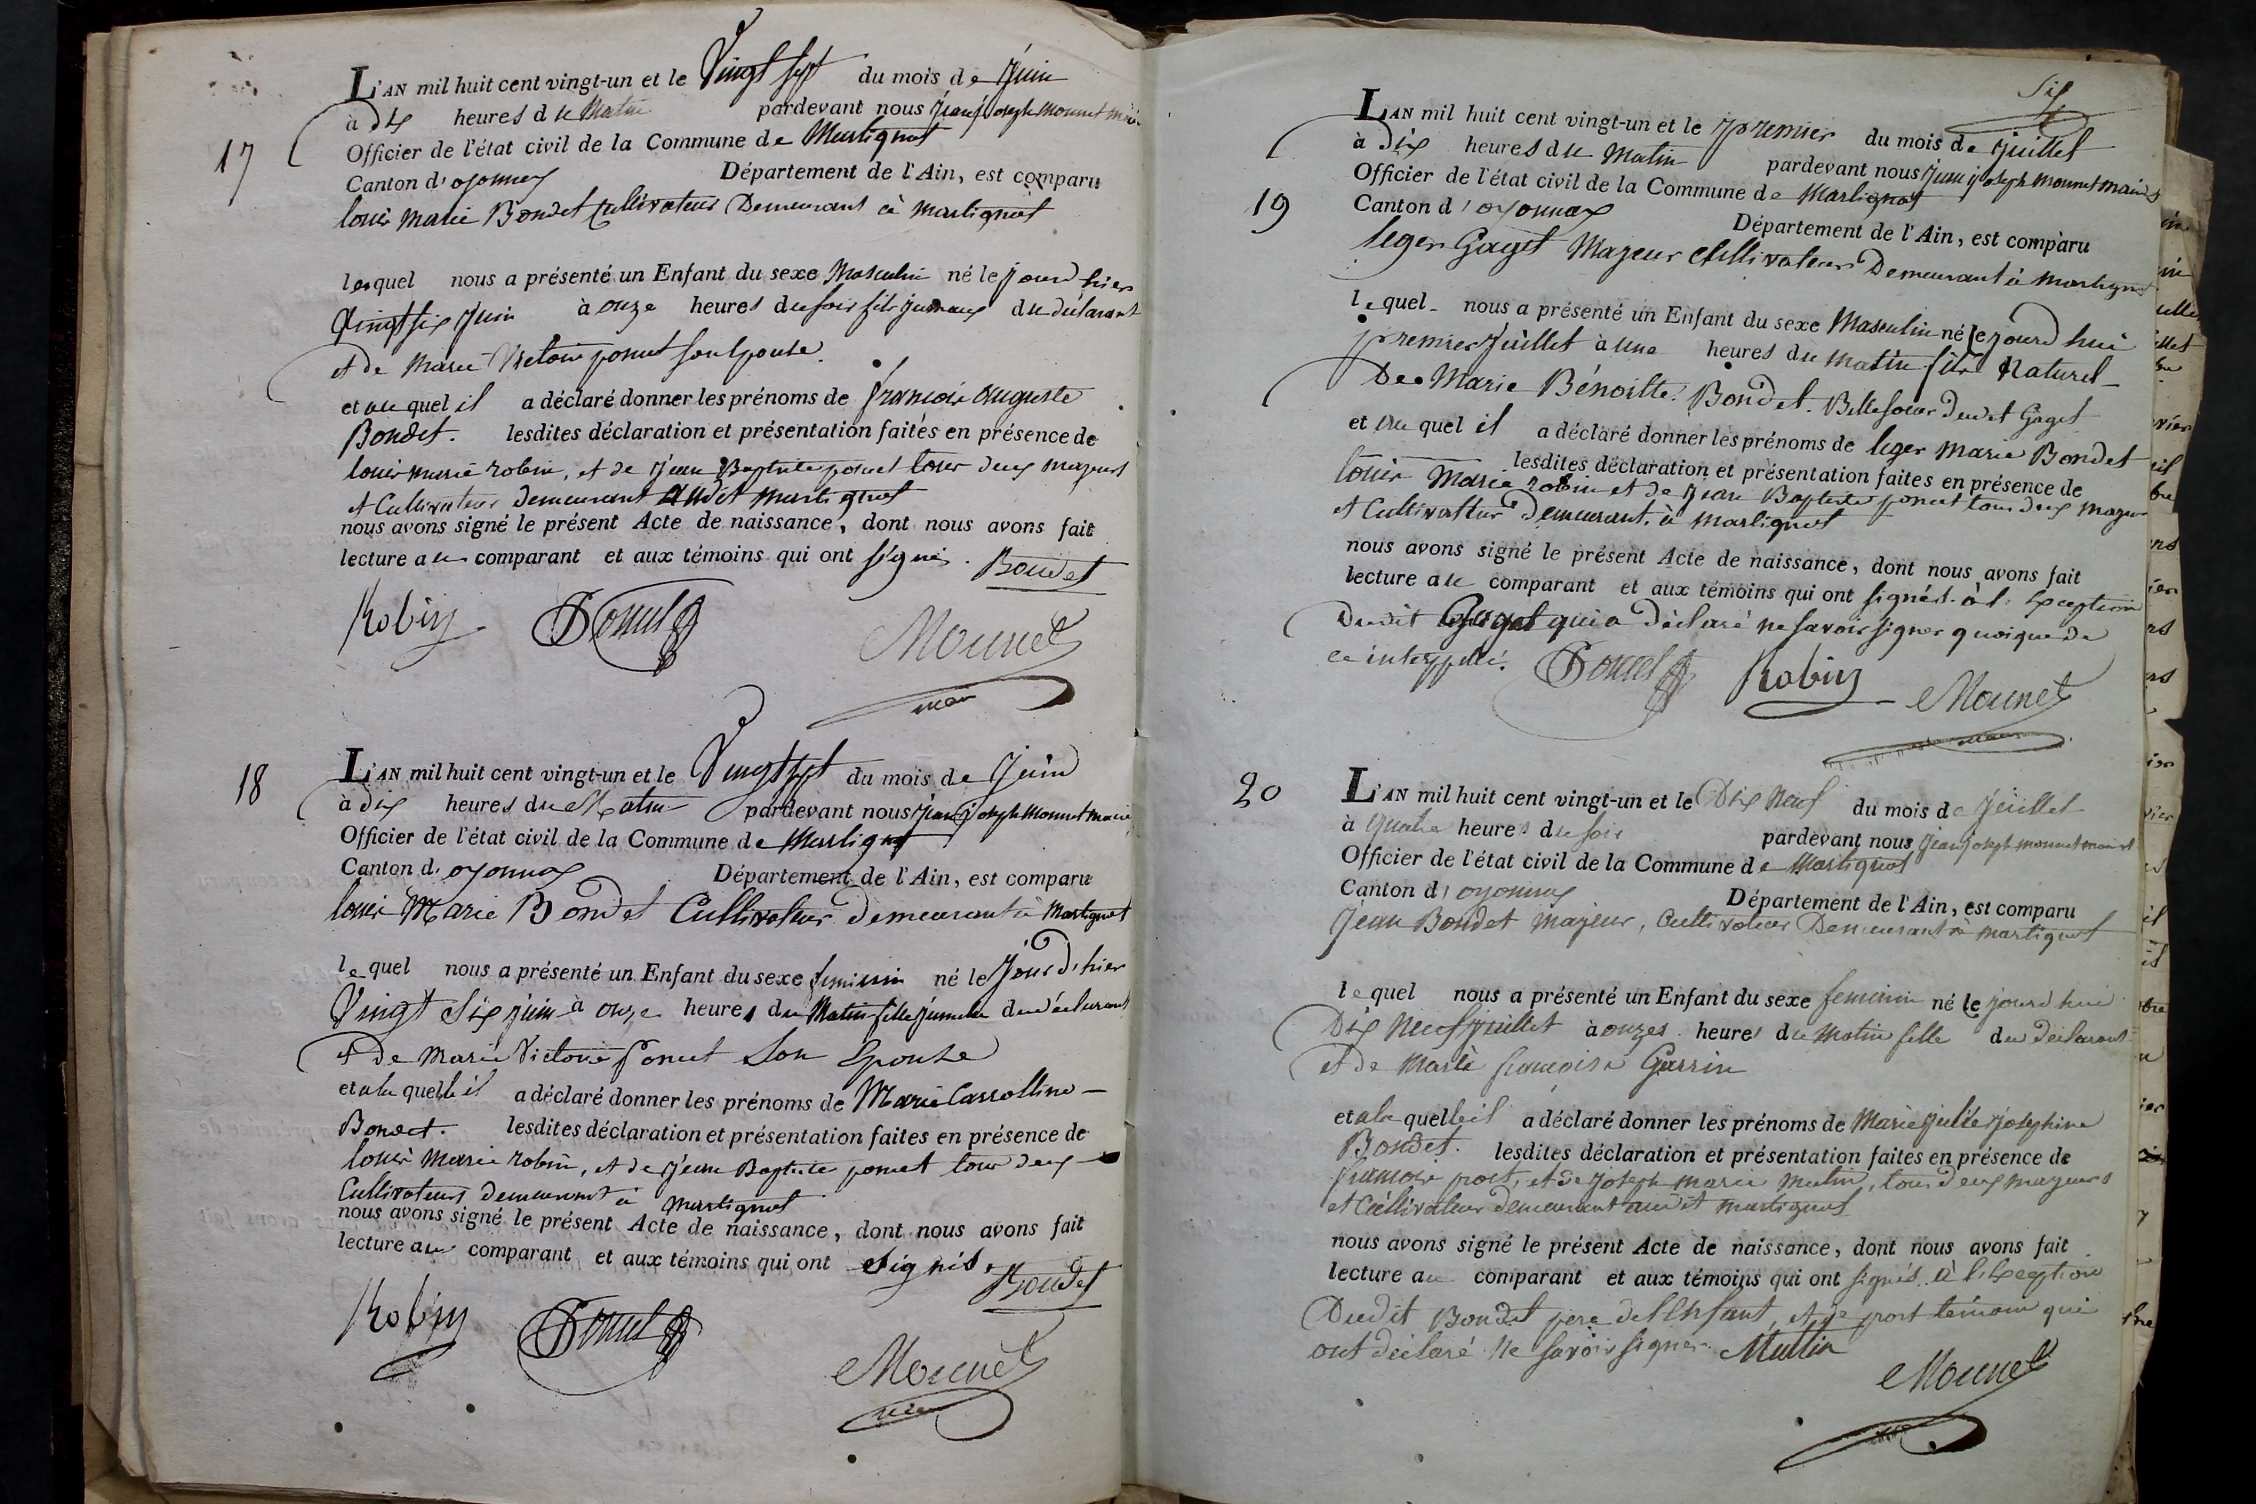 17
L'AN mil huit cent vingt-un et le Vingt sept du mois de Juin
à dix heures du Matin pardevant nous Jean Joseph Mounet maire
Officier de l'état civil de la Commune de Martignat
Canton d'oyonnax Département de l'Ain, est comparu
louis Marie Bondet Cultivateur Demeurant à Martignat
lequel nous a présenté un Enfant du sexe Masculin né le jour d'hier
Vingt six Juin à onze heures du soir fils jumeaux du déclarant
et de Marie Victoire ponset son Epouse
et au quel il a déclaré donner les prénoms de françois auguste
Bondet. lesdites déclaration et présentation faites en présence de
louis marie robin, et de jean Baptiste tous deux majeurs
et Cultivateurs demeurant audit Martignat
nous avons signé le présent Acte de naissance, dont nous avons fait
lecture au comparant et aux témoins qui ont signés. Bondet
Robin Mounet
maire
18
L'AN mil huit cent vingt-un et le Vingt sept du mois de Juin
à dix heures du Matin pardevant nous Jean Joseph Mounet maire
Officier de l'état civil de la Commune de Martignat
Canton d'oyonnax Département de l'Ain, est comparu
louis Marie Bondet Cultivateur Demeurant à Martignat
lequel nous a présenté un Enfant du sexe feminin né le Jour d'hier
Vingt Six juin à onze heures du Matin fille jumelle du déclarant
et de Marie Victoire son Epouse
et a la quelle il a déclaré donner les prénoms de Marie Carrolline
Bondet. lesdites déclaration et présentation faites en présence de
louis Marie robin, et de jean Baptiste tous deux
Cultivateurs demeurant à Martignat
nous avons signé le présent Acte de naissance, dont nous avons fait
lecture au comparant et aux témoins qui ont signés. Bondet
Robin Mounet
Six
19
L'AN mil huit cent vingt-un et le premier du mois de juillet
à dix heures du Matin pardevant nous Jean Joseph Mounet maire
Officier de l'état civil de la Commune de Martignat
Canton d'oyonnax Département de l'Ain, est comparu
leger Gaget Majeur Cultivateur Demeurant à Martignat
lequel nous a présenté un Enfant du sexe Masculin né le jourd'hui
premier Juillet à une heures du matin fils Naturel
De Marie Bénoitte Bondet. Belle soeur dudit Gaget
et au quel il a déclaré donner les prénoms de leger Marie Bondet
lesdites déclaration et présentation faites en présence de
louis Marie robin et de jean Baptiste tous deux Majeurs
et Cultivatteur demeurant à Martignat
nous avons signé le présent Acte de naissance, dont nous avons fait
lecture au comparant et aux témoins qui ont signés à l'Exception
Dudit Gaget qui a déclaré ne savoir signer quoique de
ce interppellé.
Robin Mounet
20
L'AN mil huit cent vingt-un et le Dix Neuf du mois de juillet
à quatre heures du soir pardevant nous Jean Joseph Mounet maire
Officier de l'état civil de la Commune de Martignat
Canton d'oyonnax Département de l'Ain, est comparu
Jean Bondet Majeur, Cultivateur Demeurant à Martignat
lequel nous a présenté un Enfant du sexe feminin né le jourd'hui
Dix Neuf juillet à onzes heures du Matin fille du déclarant
et de Marie françoise Garrin
et a la quelle il a déclaré donner les prénoms de Marie Julie Josephine
Bondet. lesdites déclaration et présentation faites en présence de
françois et de Joseph Marie Mutin, tous deux mayeurs
et Cultivateur demeurant audit Martignat
nous avons signé le présent Acte de naissance, dont nous avons fait
lecture au comparant et aux témoins qui ont signés à l'Exception
Dudit Bondet pere de l'Enfant, et de témoin qui
ont déclaré Ne savoir signer. Mutin
Mounet